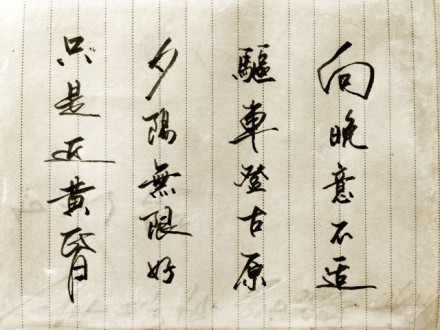 向晚意不适
驅車登古原
夕陽無限好
只是近黃昏